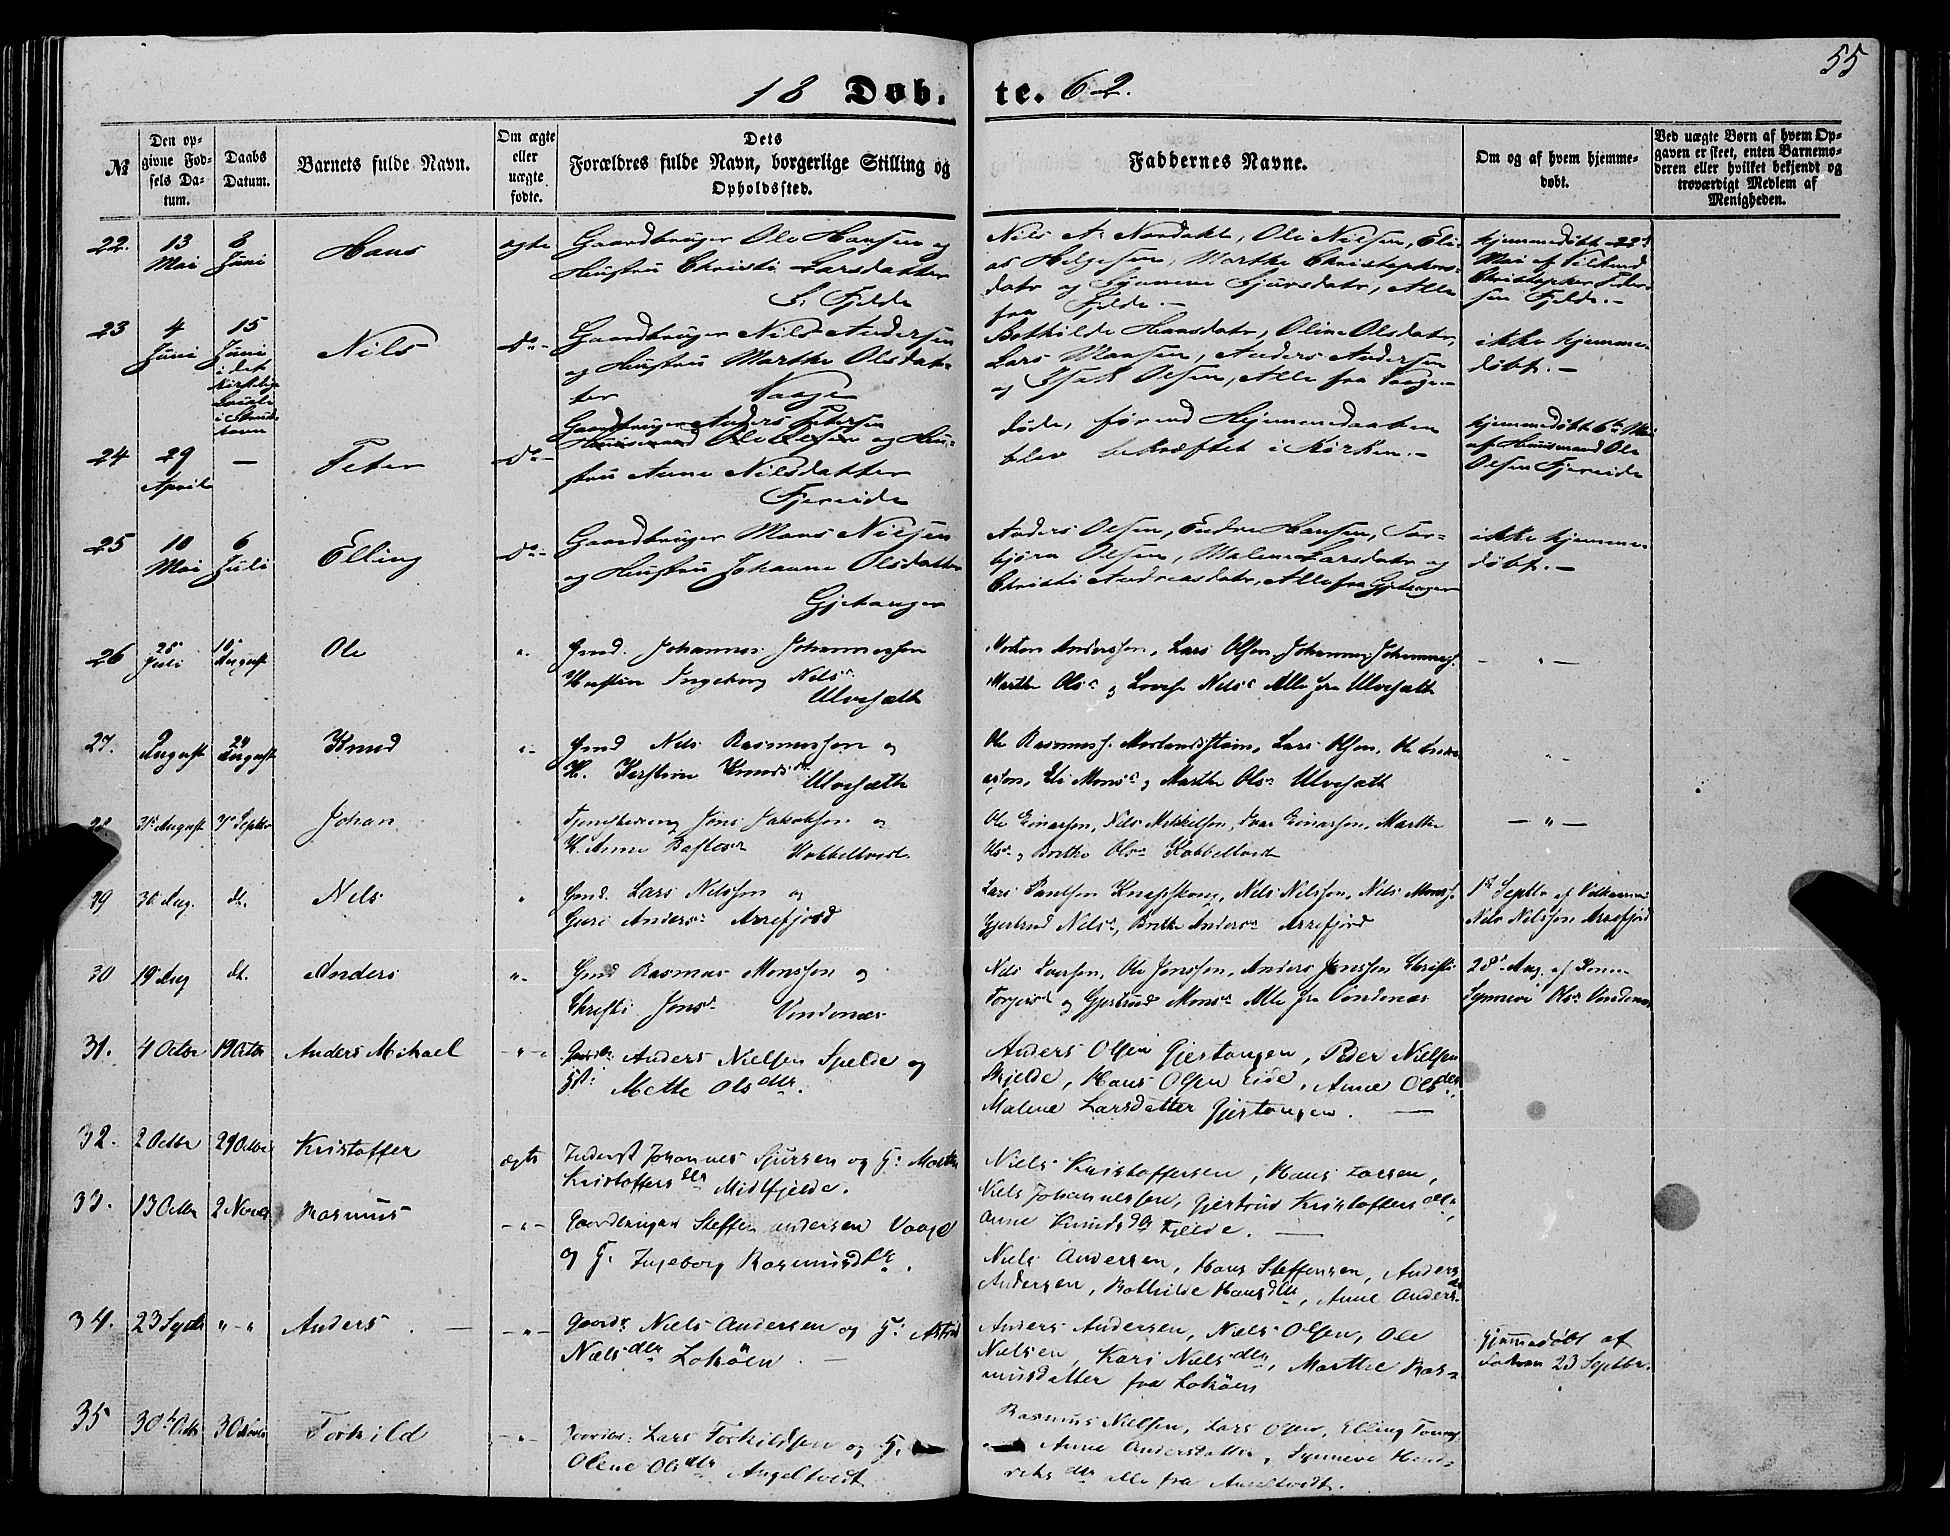 55
18 Døb. te. 62.
№
Den op-
givne Fød-
sels Da-
tum.
Daabs
Datum.
Barnets fulde Navn.
Om ægte
eller
uægte
fødte.
Dets
Forældres fulde Navn, borgerlige Stilling og
Opholdssted.
Faddernes Navne.
Om og af hvem hjemme-
døbt.
Ved uægte Børn af hvem Op-
gaven er skeet, enten Barnemo-
deren eller hvilket bekjendt og
troværdigt Medlem af
Menigheden.
22.
13
Mai
8
Juni
Hans
ægte
Gaardbruger Ole Hansen og
Hustru Christi Larsdatter
Fjelde
Nils A. Nordahl, Ole Nilsen, Eli-
as Helgesen, Marthe Christophers-
datr og Synneve Sjursdatr, Alle
fra Fjelde.-
hjemmedøbt 22d
Mai af
Christopher Peder-
sen Fjelde.-
23
4
Juni
15
Juni
i det
kirkelige
Locale
Nils
Do-
Gaardbruger Nils Andersen
og Hustru Marthe Olsdat-
ter Vaage
Bothilde Hansdatr, Oline Olsdatr,
Lars Monsen, Anders Andersen
og Isak Olsen, Alle fra Vaage.-
ikke hjemme-
døbt.-
24
29
April
—
Peter
Do-
Gaardbruger Anders Petersen
Huusmand Ole Olsen og Hu-
stru Anne Nilsdatter
Fjereide
døde, førend Hjemmedaaben
blev bekræftet i Kirken.-
hjemmedøbt 6te Mai
af Huusmand Ole
Olsen Fjereide
25
10
Mai
6
Juli
Elling
Do-
Gaardbruger Mons Nilsen
og Hustru Johanne Olsdatter
Gjetanger
Anders Olsen, Endre Hansen, Tor-
bjørn Olsen, Malene Larsdatr og
Christi Andreasdatr, Alle fra Gjetanger
ikke hjemme-
døbt.-
26
28
Juli
10
August
Ole
"
Gmd. Johannes Johannessen
Ingeborg Nilsd
Ulvesæth
Morten Anderssen, Lars Olsen, Johannes Johanness.
Marthe Olsd og Nilsd Alle fra Ulvesæth
- " -
27.
9
August
24
August
Knud
"
Gmd Nils Rasmussen og
H. Kirstine Knudsdr
Ulvesæth
Ole Rasmuss. Lars Olsen, Ole
Eli Monsd og Marthe Olsd Ulvesæth
" -
28
31t August
Septbr
Johan
Jens Jakobsen og
H. Anne
Kobbeltvedt.
Ole Einarsen, Nils Mikkelsen, Ivar Einarsen, Marthe
Olsd og Brithe Olsd Kobbeltvedt
- " -
29
30 Aug.
dt.
Nils
"
Gmd. Lars Nilssen og
Guri Andersd Arrefjord
Lars Paulsen Knapskog, Nils Nilssen, Nils Monss.
Gjertrud Nilsd, Brithe Andersd Arrefjord
1st Septbr af
Nils Nilssen Arrefjord
30
19 Aug
dt.
Anders
"
Gmd Rasmus Monssen og
Christi Jonsd Vindenæs
Nils Iversen, Ole Jonssen, Anders Jonssen Christi
og Gjertrud Monsd Alle fra Vindenæs
28 Aug. af Konen
Synnevi Olsd Vindenæs
31.
4 Octbr
19 Octbr
Anders Mikael
- " -
Gaardbr. Anders Nielsen Spilde og
H: Mette Olsdtr.
Anders Olsen Gjestangen, Peder Nielsen
Skjelde, Hans Olsen Eide, Anne Olsdtr.
Malene Larsdatter Gjestangen. —
32.
2 Octbr
29 Octbr
Kristoffer
ægte
Inderst Johannes Sjursen og H: Marthe
Kristoffersdtr Midtfjelde.
Niels Kristoffersen, Hans Larsen,
Niels Johannessen, Gjertrud Kristoffersdtr,
Anne Knudsdtr Fjelde. —
33.
13 Octbr
2 Novbr
Rasmus
- " -
Gaardbruger Steffen Andersen Vaage
og H. Ingeborg Rasmusdtr.
Niels Andersen, Hans Steffensen, Anders
Andersen, Bothilde Hansdtr, Anne Andersdtr
34.
23 Septbr
" - "
Anders. —
- " -
Gaardbr Niels Andersen og H:
Nielsdtr Lokøen. —
Anders Andersen, Niels Olsen, Ole
Nielsen, Kari Nielsdtr, Marthe Ras-
musdatter fra Lokøen
Hjemmedøbt af
Faderen 23 Septbr.
35
30 Octbr
30 Novbr
Torkild
- " -
Gaardbr. Lars Torkildsen og H.
Olene Olsdtr Angeltvedt
Rasmus Nielsen, Lars Olsen, Elling
Anne Andersdatter, Synneve Hend-
riksdtr alle fra Angeltvedt.